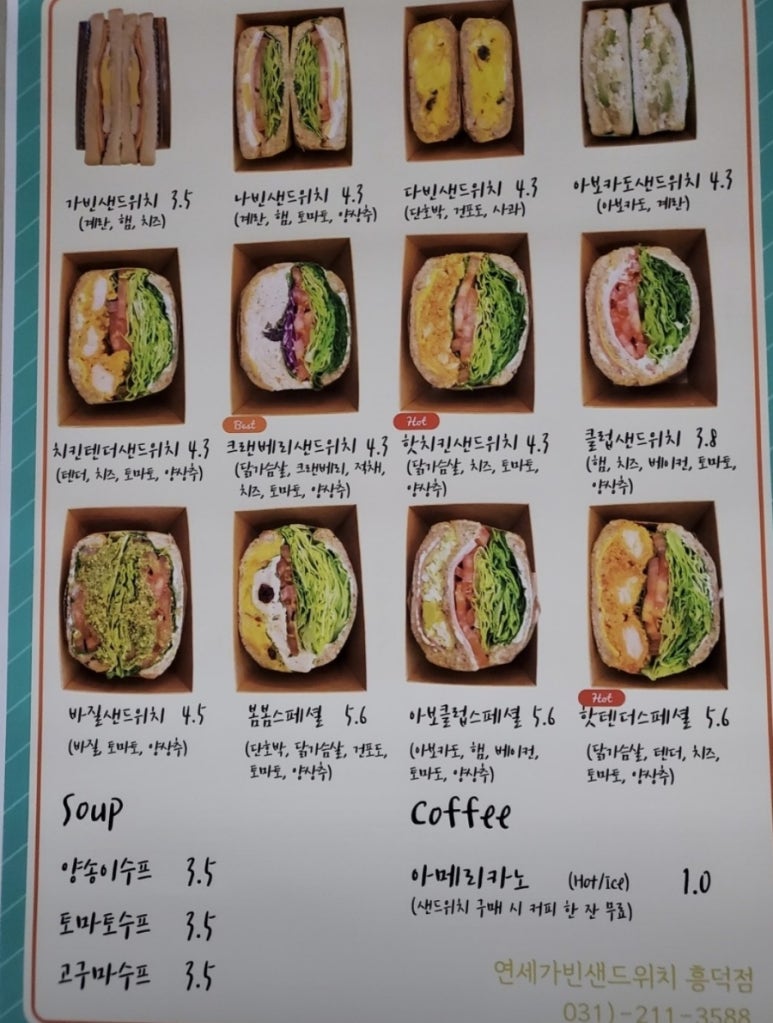 가빈샌드위치 3.5
(계란, 햄, 치즈)
나빈샌드위치 4.3
(계란, 햄, 토마토, 양상추)
다빈샌드위치 4.3
(단호박, 건포도, 사과)
아보카도샌드위치 4.3
(아보카도, 계란)
치킨텐더샌드위치 4.3
(텐더, 치즈, 토마토, 양상추)
Best
크랜베리샌드위치 4.3
(닭가슴살, 크랜베리, 적채,
치즈, 토마토, 양상추)
Hot
핫치킨샌드위치 4.3
(닭가슴살, 치즈, 토마토,
양상추)
클럽샌드위치 3.8
(햄, 치즈, 베이컨, 토마토,
양상추)
바질샌드위치 4.5
(바질, 토마토, 양상추)
봄봄스페셜 5.6
(단호박, 닭가슴살, 건포도,
토마토, 양상추)
아보클럽스페셜 5.6
(아보카도, 햄, 베이컨,
토마도, 양상추)
Hot
핫텐더스페셜 5.6
(닭가슴살, 텐더, 치즈,
토마토, 양상추)
Soup
양송이수프 3.5
토마토수프 3.5
고구마수프 3.5
Coffee
아메리카노 (Hot/ice) 1.0
(샌드위치 구매 시 커피 한 잔 무료)
연세가빈샌드위치 흥덕점
031)-211-3588